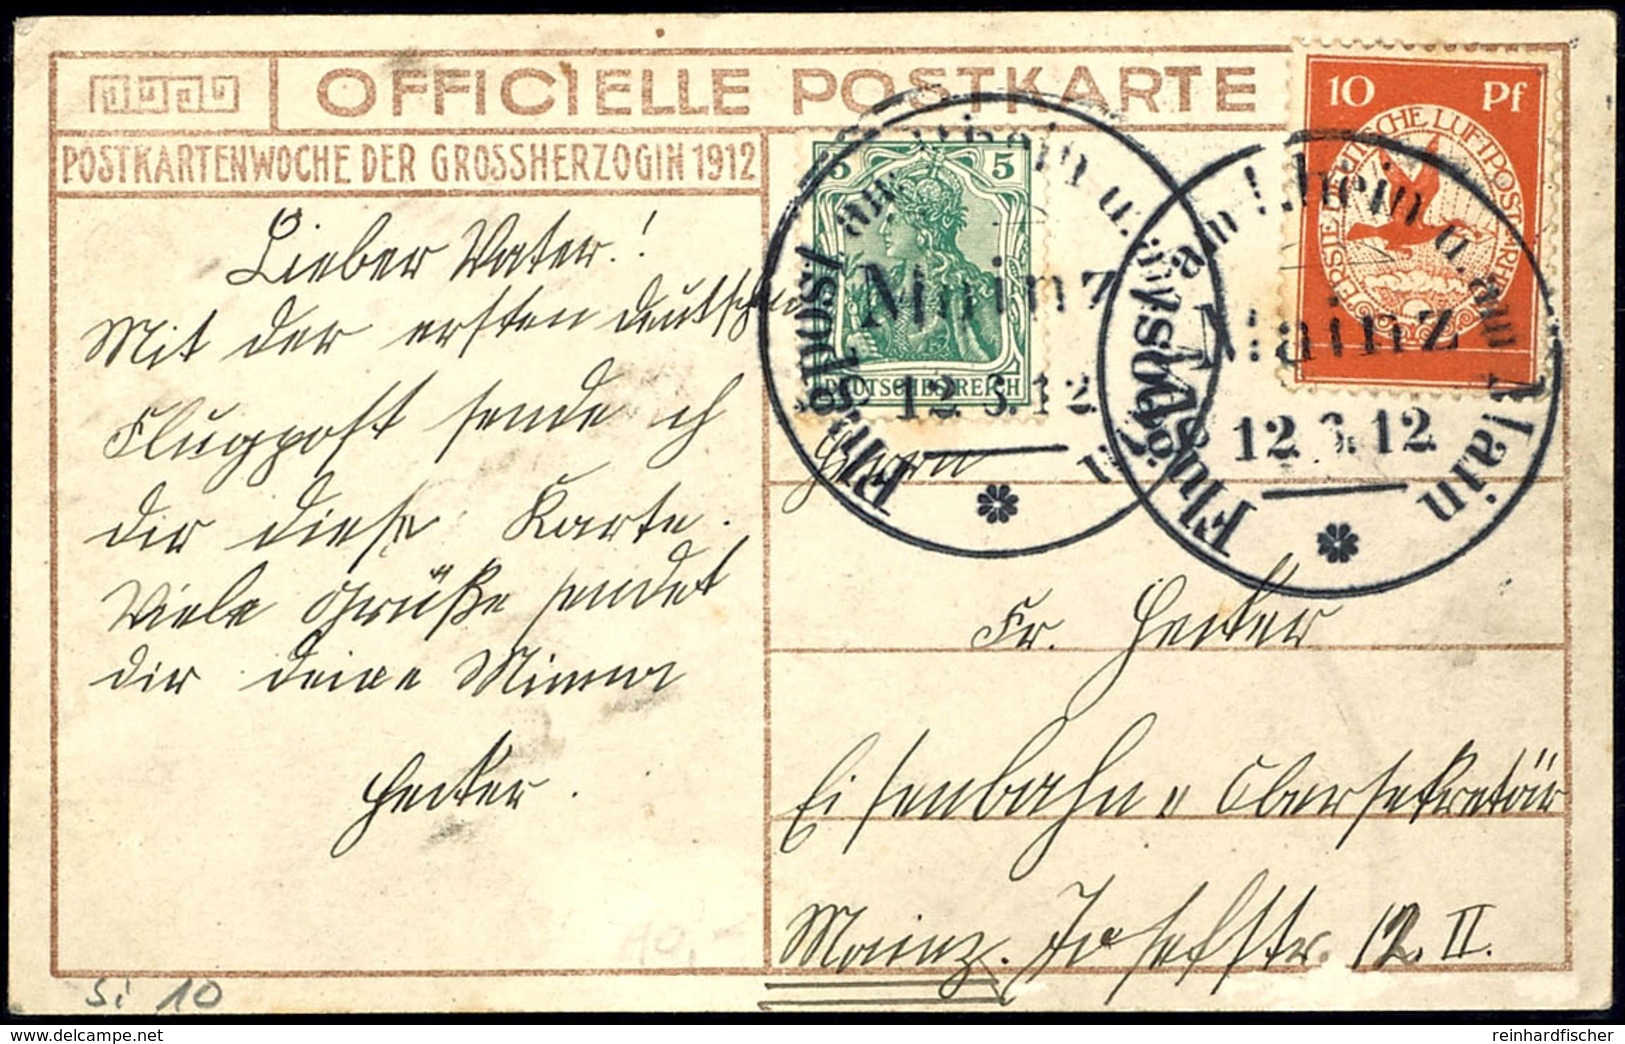 OFFICIELLE POSTKARTE
POSTKARTENWOCHE DER GROSSHERZOGIN 1912
5 5
DEUTSCHES REICH
10 Pf
ERSTE DEUTSCHE LUFTPOST
Flugpost am Rhein u.
Mainz
12.6.12
Flugpost am Rhein u. am Main
Mainz
12.6.12
Lieber Vater!
Mit der ersten deutschen
Flugpost sende ich
dir diese Karte.
Viele Grüße sendet
dir deine Minna
Hecker.
Herrn
Fr. Hecker
Eisenbahn Obersekretär
Mainz. Josefstr. 12. II.
Si 10
40,-
delcampe.net
reinhardfischer